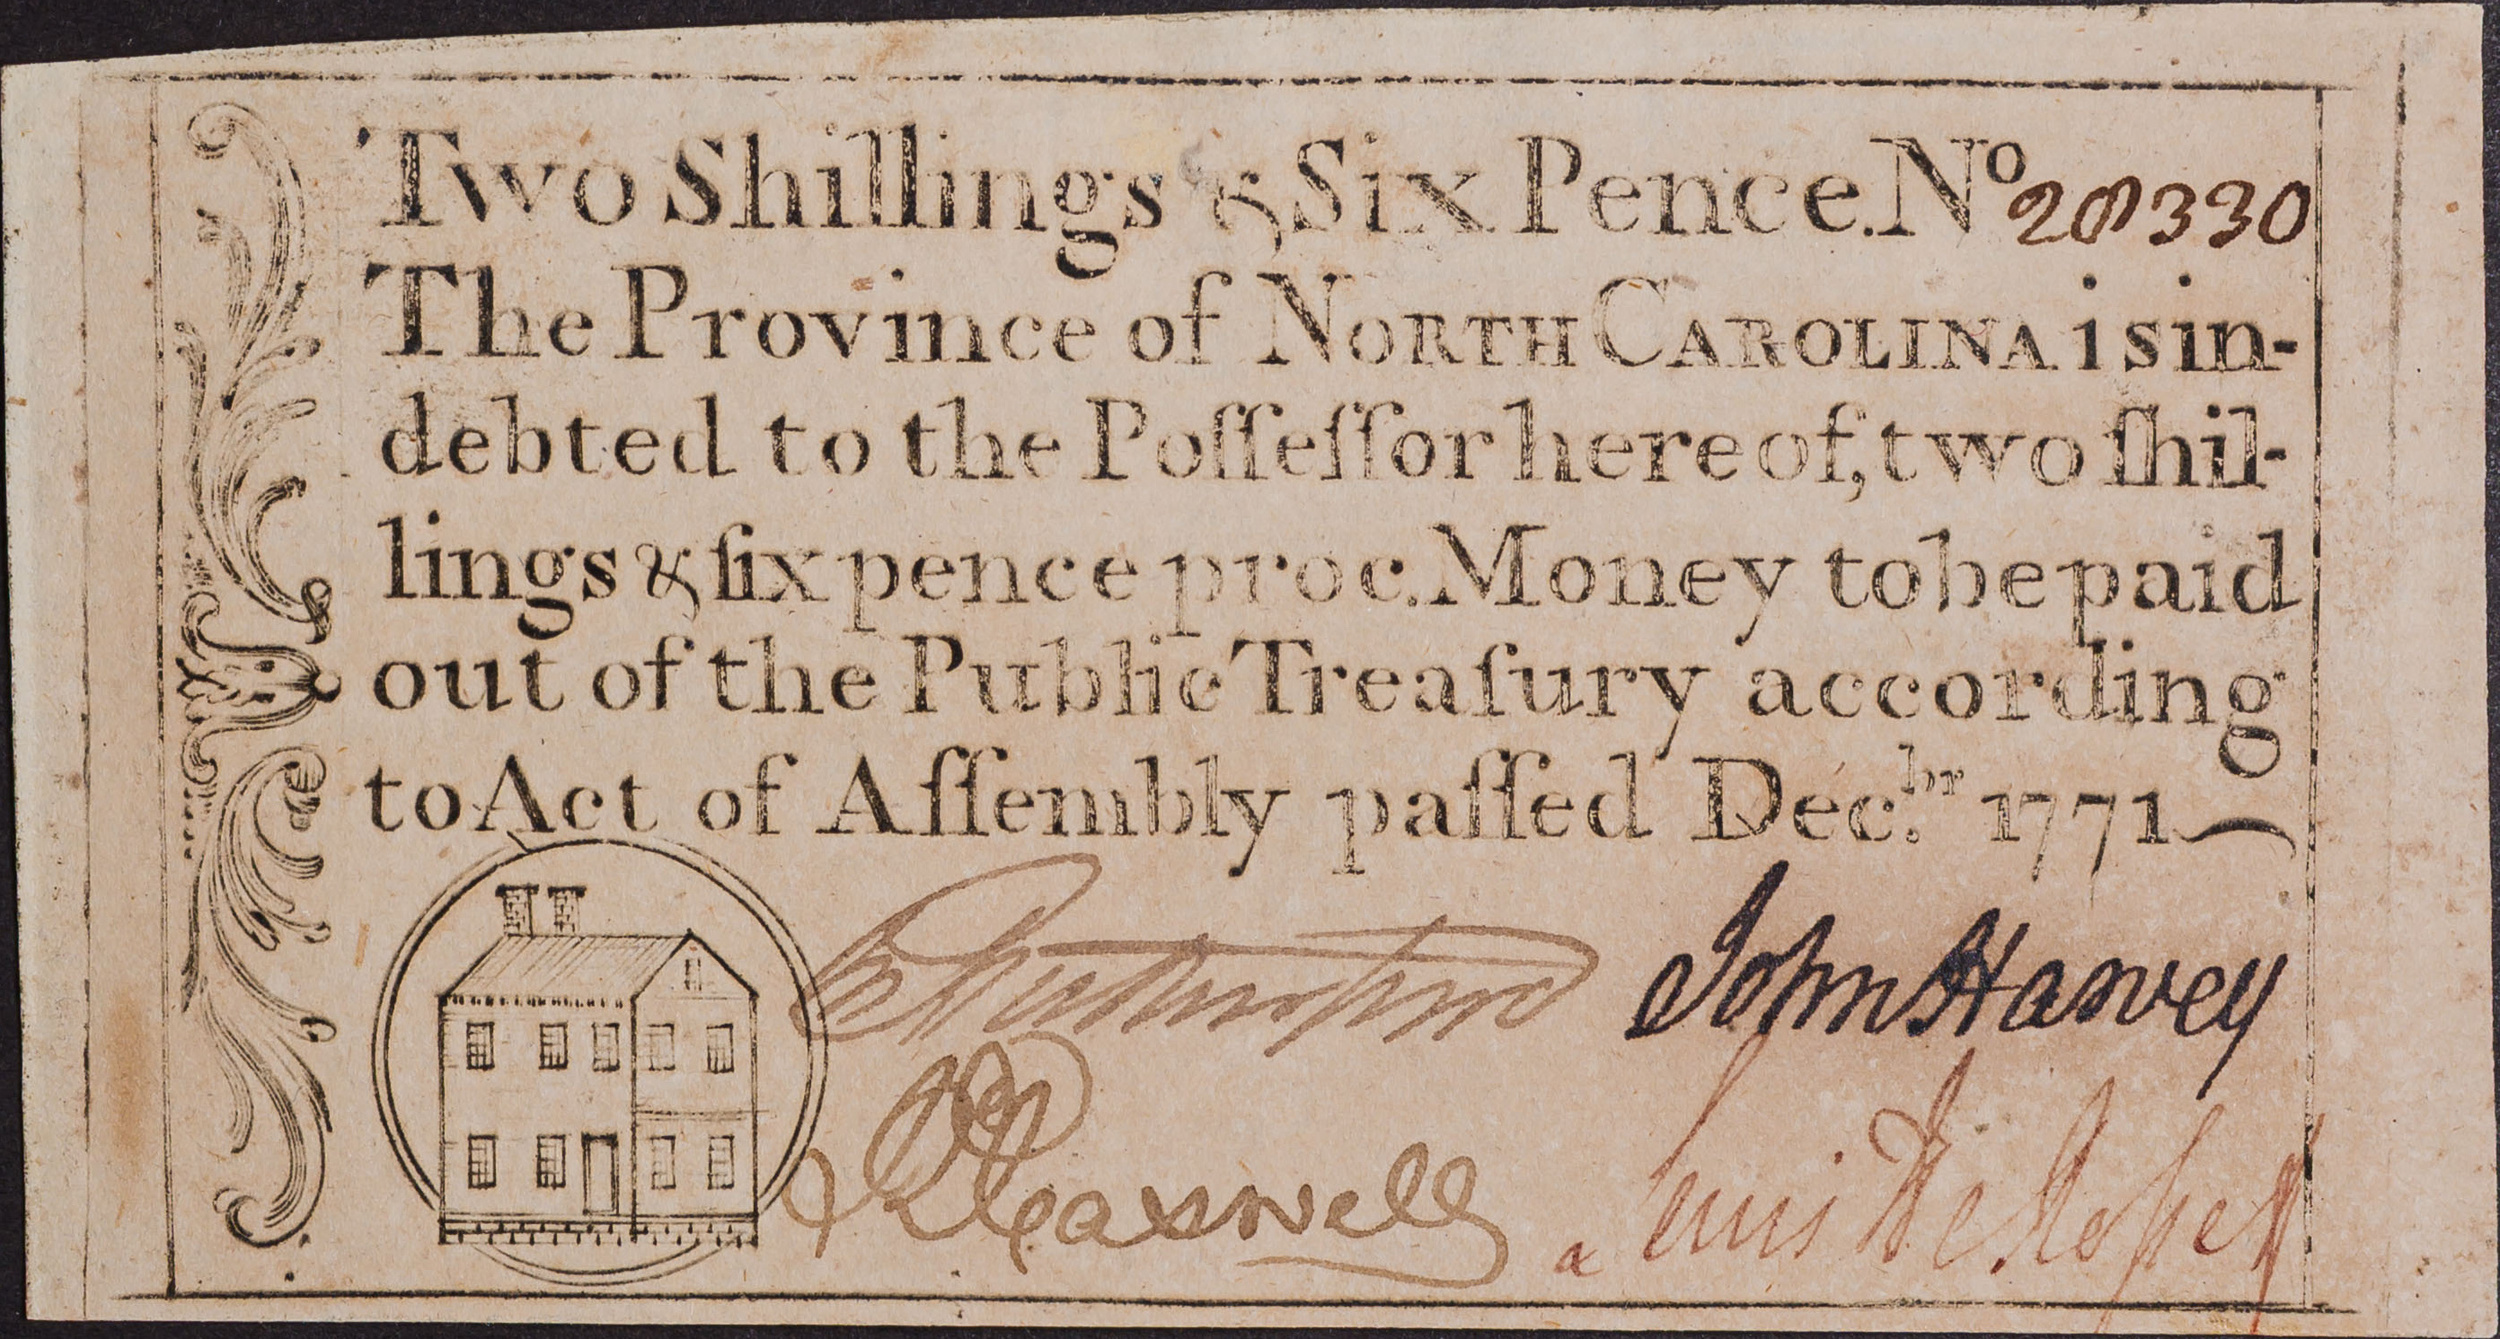 Two Shillings & Six Pence. No 20330
The Province of NORTH CAROLINA is in-
debted to the Poſſeſſor hereof, two ſhil-
lings & ſix pence proc. Money to be paid
out of the Public Treaſury according
to Act of Aſſembly paſſed Dec.br 1771
John Harvey
Lewis De Roſſet